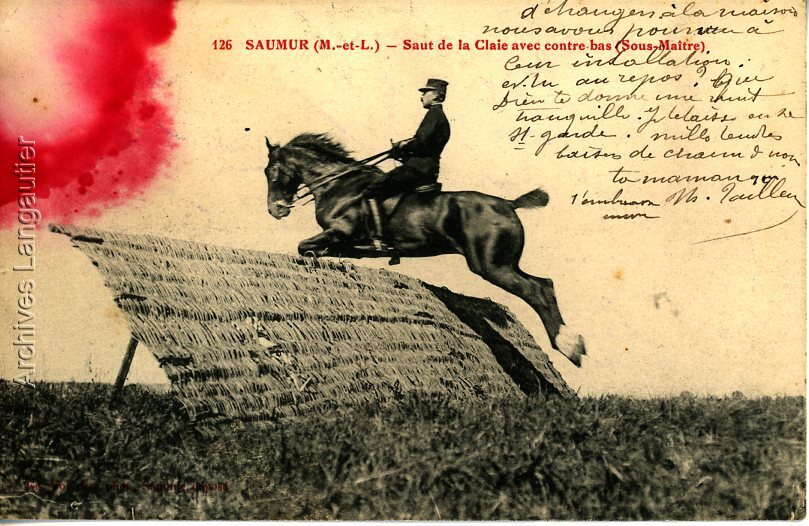 126 SAUMUR (M.-et-L.) — Saut de la Claie avec contre-bas (Sous-Maître).
d'échanges à la maison
nous avons pourvu à
leur installation.
es-tu au repos? Que
Dieu te donne une nuit
tranquille. Je te laisse en se
Ste garde. mille tendres
baisers de
ta maman qui
t'embrasse
encore
Archives Langautier